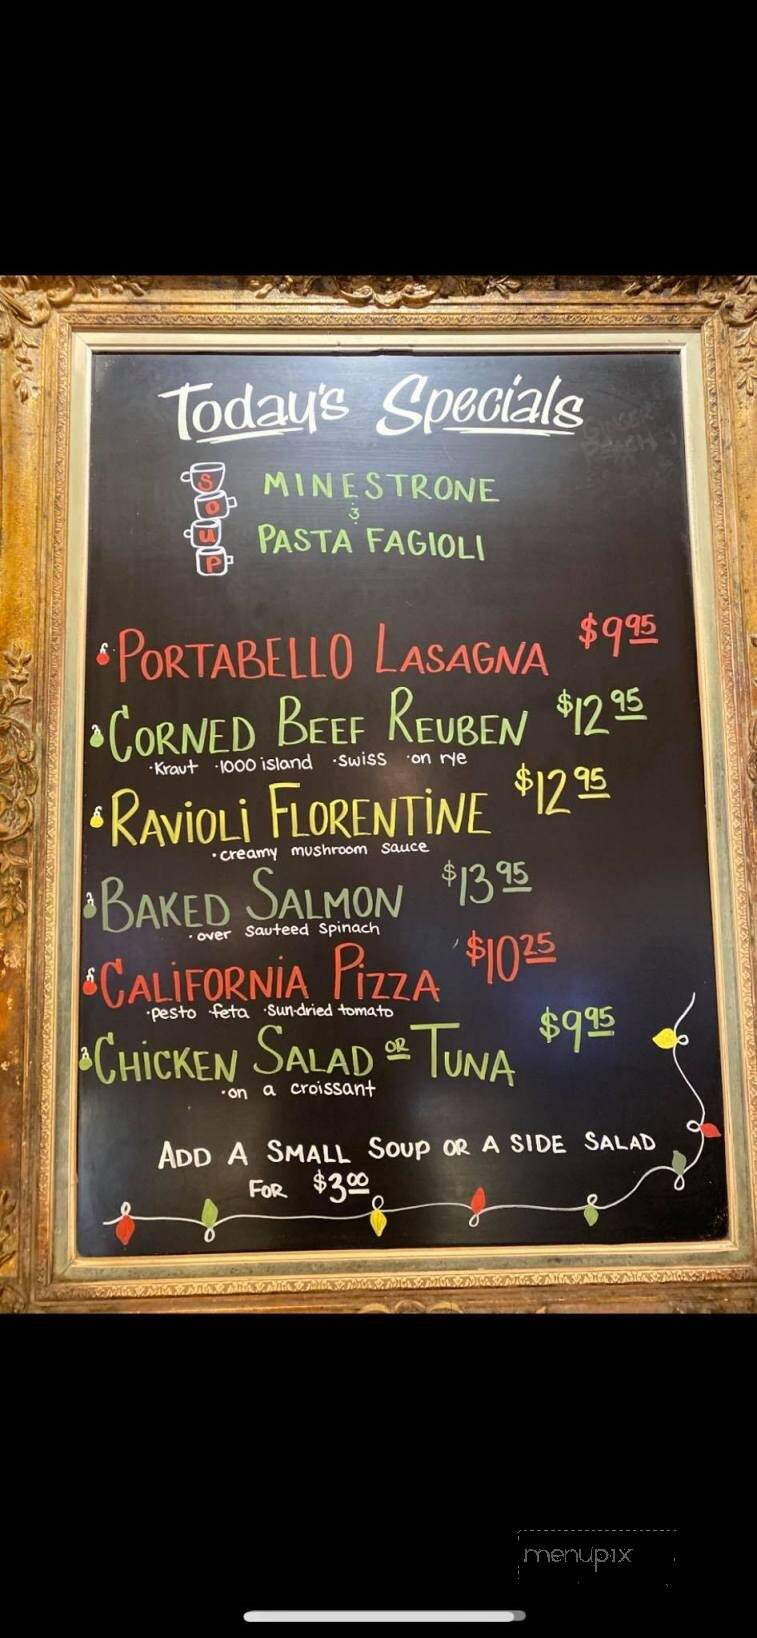 Today's Specials
SOUP
MINESTRONE
&
PASTA FAGIOLI
PORTABELLO LASAGNA $9.95
CORNED BEEF REUBEN $12.95
·Kraut ·1000 island ·Swiss ·on rye
RAVIOLI FLORENTINE $12.95
·creamy mushroom sauce
BAKED SALMON $13.95
·over sauteed spinach
CALIFORNIA PIZZA $10.25
·pesto ·feta ·sun-dried tomato
CHICKEN SALAD OR TUNA $9.95
·on a croissant
ADD A SMALL SOUP OR A SIDE SALAD
FOR $3.00
menupix